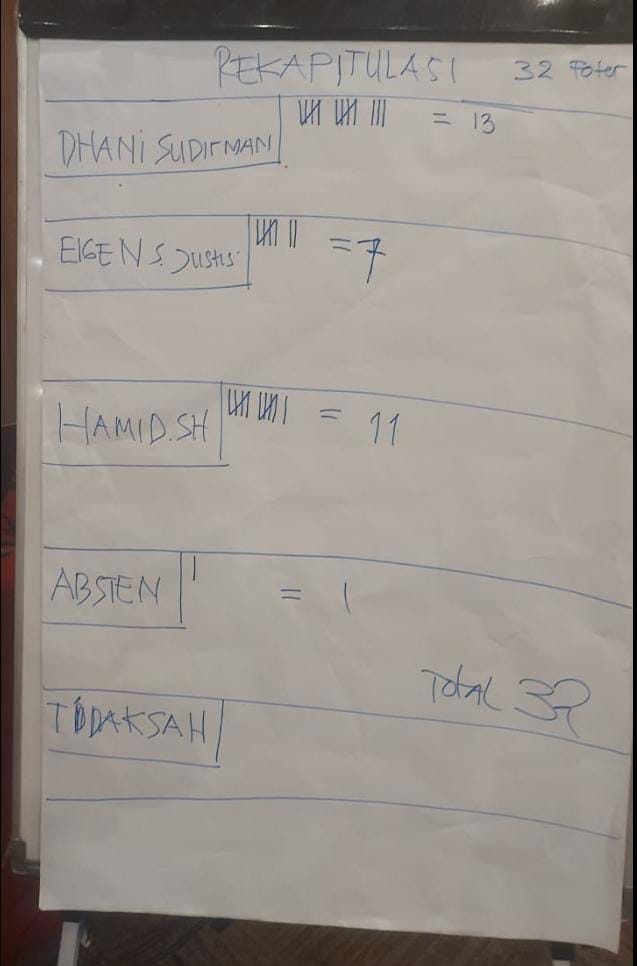 REKAPITULASI 32 Foter
DHANI SUDIRMAN = 13
EIGEN S. Justis = 7
HAMID.SH = 11
ABSTEN = 1
Total 32
TIDAKSAH